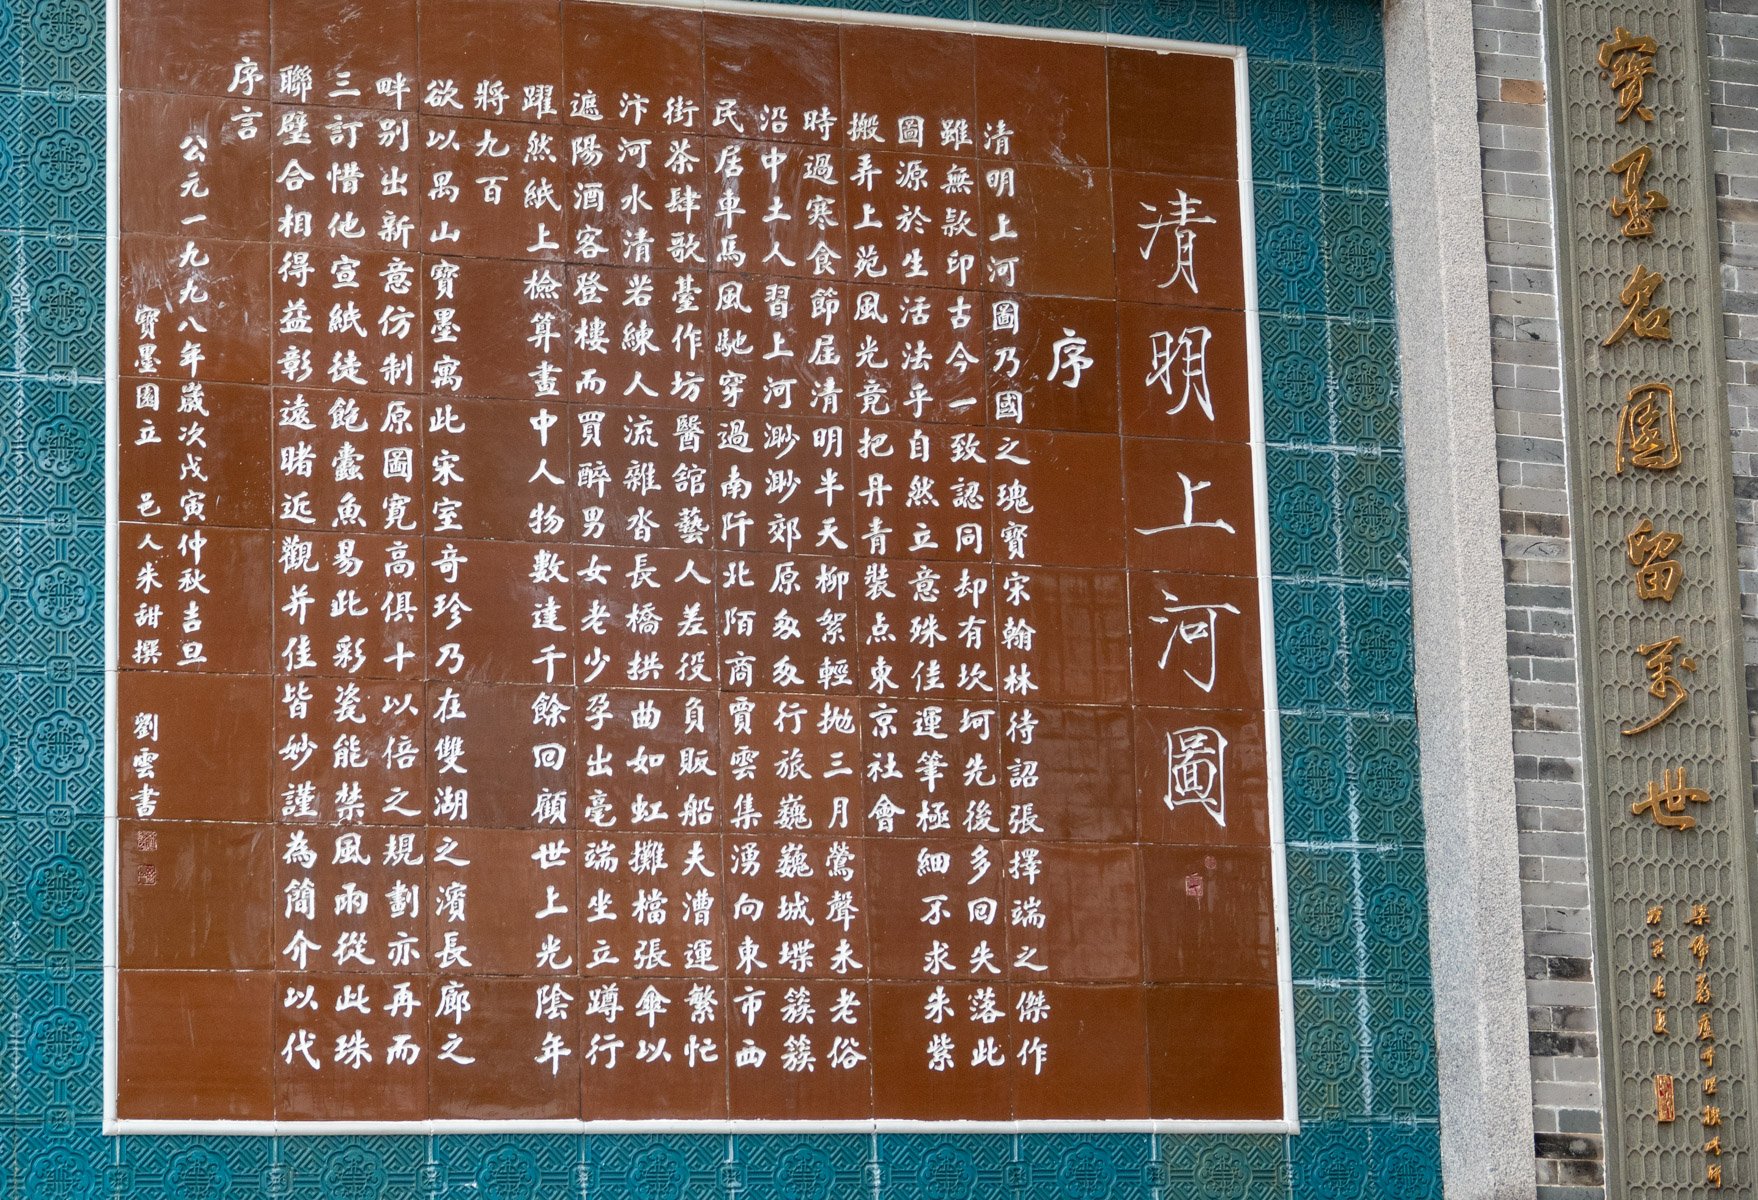 寶墨名園留萬世
清明上河圖
序
清明上河圖乃國之瑰寶宋翰林待詔張擇端之傑作
雖無款印古今一致認同却有坎坷先後多回失落此
圖源於生活法乎自然立意殊佳運筆極細不求朱紫
搬弄上苑風光竟把丹青裝点東京社會
時過寒食節屆清明半天柳絮輕拋三月鶯聲未老俗
沿中土人習上河渺渺郊原匆匆行旅巍巍城堞簇簇
民居車馬風馳穿過南阡北陌商賈雲集湧向東市西
街茶肆歌臺作坊醫舘藝人差役負販船夫漕運繁忙
汴河水清若練人流雜沓長橋拱曲如虹攤檔張傘以
遮陽酒客登樓而買醉男女老少孕出毫端坐立蹲行
躍然紙上檢算畫中人物數達千餘回顧世上光陰年
將九百
欲以禺山寶墨寓此宋室奇珍乃在雙湖之濱長廊之
畔別出新意仿制原圖寬高俱十以倍之規劃亦再而
三訂惜他宣紙徒飽蠹魚易此彩瓷能禁風雨從此珠
聯璧合相得益彰遠睹近觀并佳皆妙謹為簡介以代
序言
公元一九九八年歲次戊寅仲秋吉旦
寶墨園立 邑人朱甜撰 劉雲書